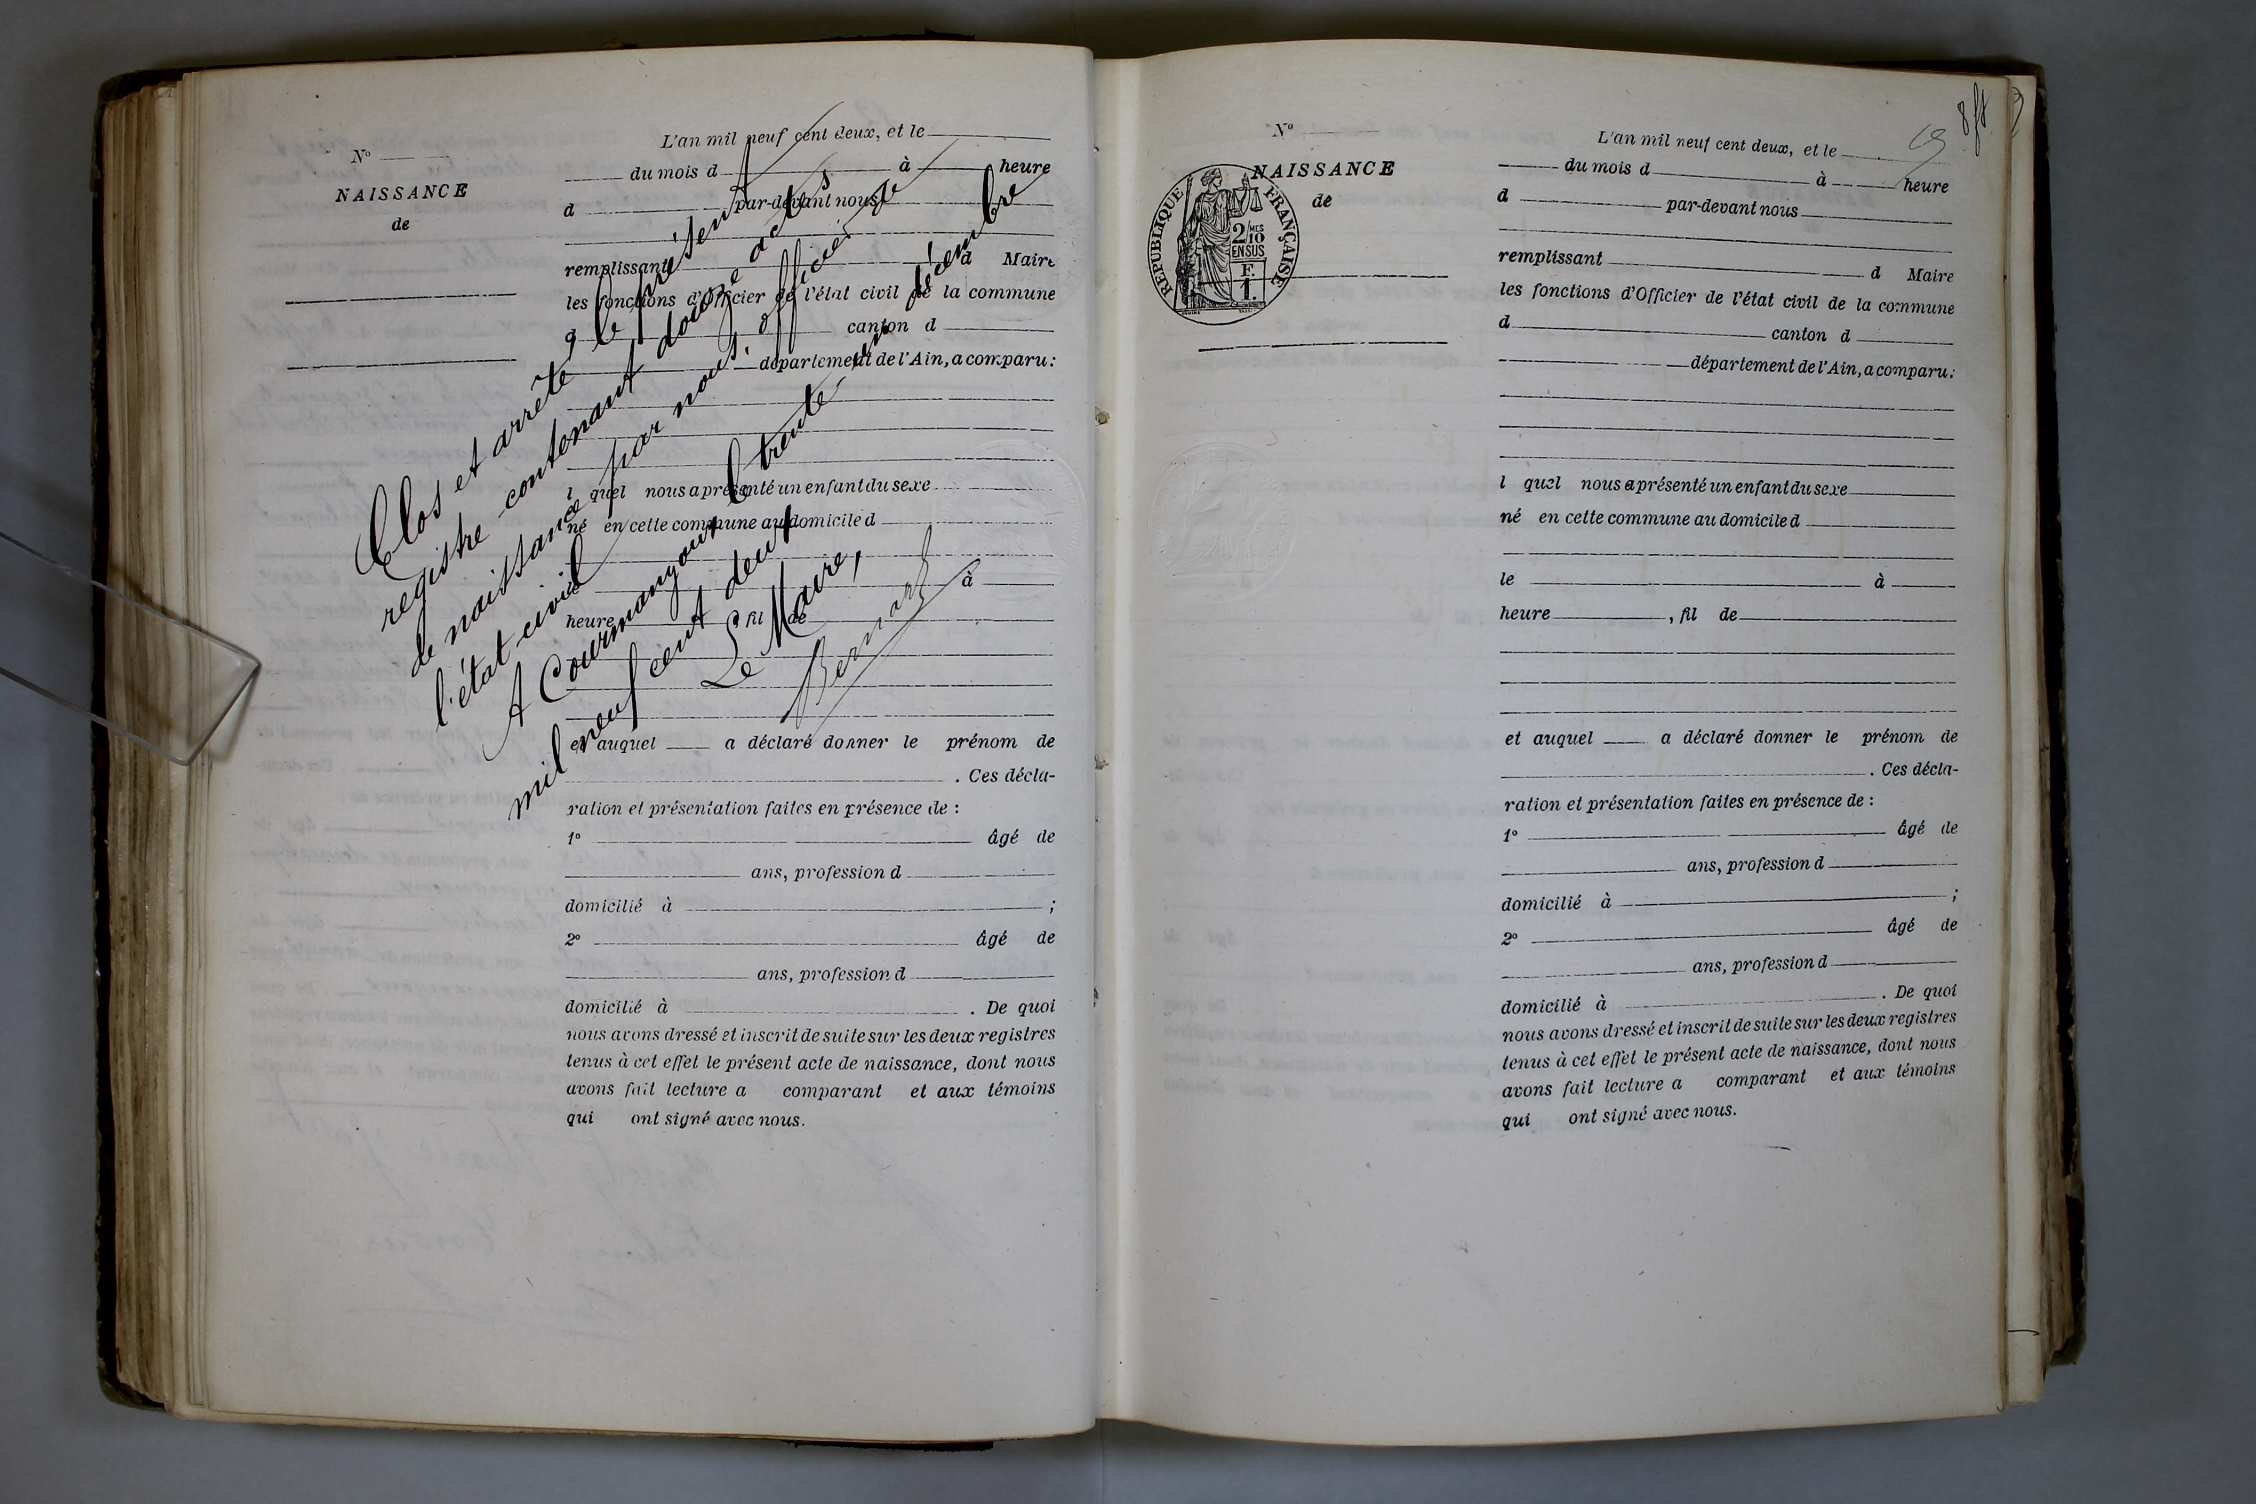 Nº
NAISSANCE
de
L'an mil neuf cent deux, et le
du mois d à heure
d par-devant nous
remplissant d Maire
les fonctions d'Officier de l'état civil de la commune
d canton d
département de l'Ain, a comparu:
l quel nous a présenté un enfant du sexe
né en cette commune au domicile d
le à
heure , fil de
et auquel a déclaré donner le prénom de
. Ces décla-
ration et présentation faites en présence de :
1º âgé de
ans, profession d
domicilié à ;
2º âgé de
ans, profession d
domicilié à . De quoi
nous avons dressé et inscrit de suite sur les deux registres
tenus à cet effet le présent acte de naissance, dont nous
avons fait lecture a comparant et aux témoins
qui ont signé avec nous.
Clos et arrêté le présent
registre contenant douze actes
de naissance par nous, officier de
l'état-civil
A Courmangoux le trente un décembre
mil neuf cent deux
Le Maire,
Bernard
8 ft
Nº
NAISSANCE
de
REPUBLIQUE FRANÇAISE
2 MES
10
EN SUS
F.
1.
L'an mil neuf cent deux, et le
du mois d à heure
d par-devant nous
remplissant d Maire
les fonctions d'Officier de l'état civil de la commune
d canton d
département de l'Ain, a comparu:
l quel nous a présenté un enfant du sexe
né en cette commune au domicile d
le à
heure , fil de
et auquel a déclaré donner le prénom de
. Ces décla-
ration et présentation faites en présence de :
1º âgé de
ans, profession d
domicilié à ;
2º âgé de
ans, profession d
domicilié à . De quoi
nous avons dressé et inscrit de suite sur les deux registres
tenus à cet effet le présent acte de naissance, dont nous
avons fait lecture a comparant et aux témoins
qui ont signé avec nous.